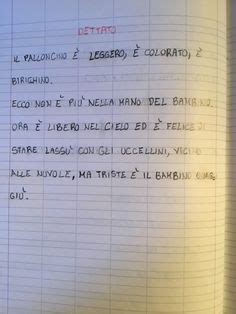 DETTATO
IL PALLONCINO È LEGGERO, È COLORATO, È
BIRICHINO.
ECCO NON È PIÙ NELLA MANO DEL BAMBINO.
ORA È LIBERO NEL CIELO ED È FELICE DI
STARE LASSÙ CON GLI UCCELLINI, VICINO
ALLE NUVOLE, MA TRISTE È IL BAMBINO
GIÙ.